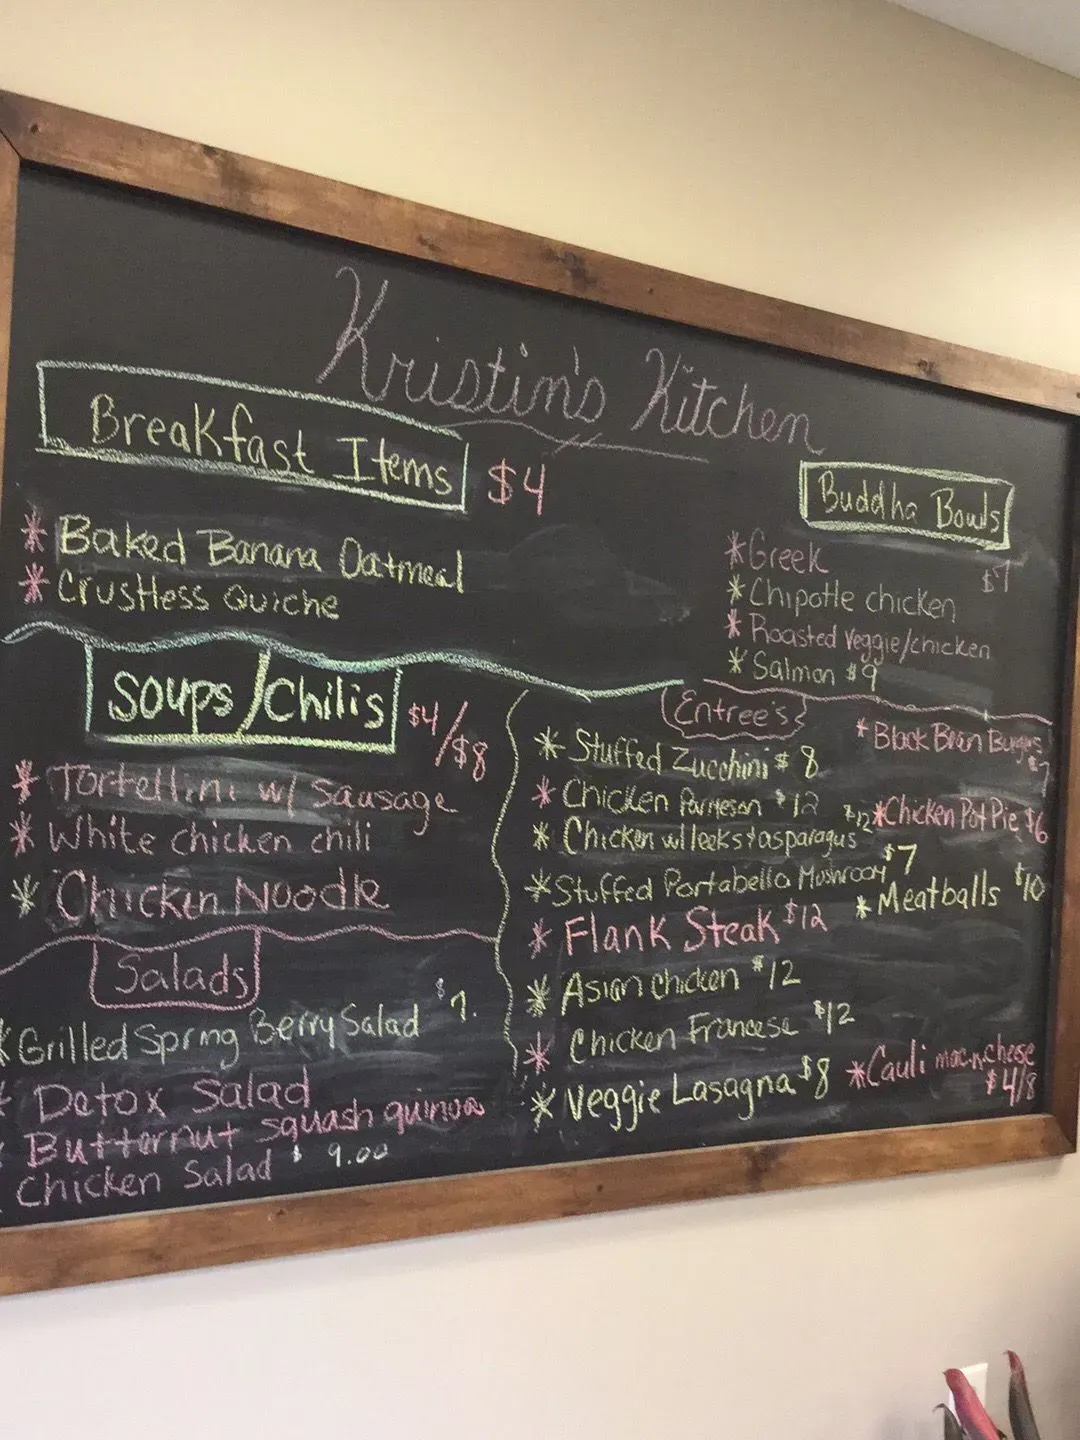 Kristin's Kitchen
Breakfast Items $4
* Baked Banana Oatmeal
* Crustless Quiche
Buddha Bowls
* Greek $7
* Chipotle chicken
* Roasted veggie/chicken
* Salmon $9
Soups/Chilis $4/$8
* Tortellini w/ sausage
* White chicken chili
* Chicken Noodle
Salads
* Grilled Spring Berry Salad $7.
* Detox Salad
* Butternut squash quinoa
Chicken Salad $9.00
Entree's
* Stuffed Zucchini $8
* Chicken Parmesan $12
* Chicken w/ leeks + asparagus $12
* Stuffed Portabella Mushroom $7
* Flank Steak $12
* Asian chicken $12
* Chicken Francese $12
* Veggie Lasagna $8
* Black Bean Burgers $7
* Chicken Pot Pie $6
* Meatballs $10
* Cauli mac n cheese
$4/8